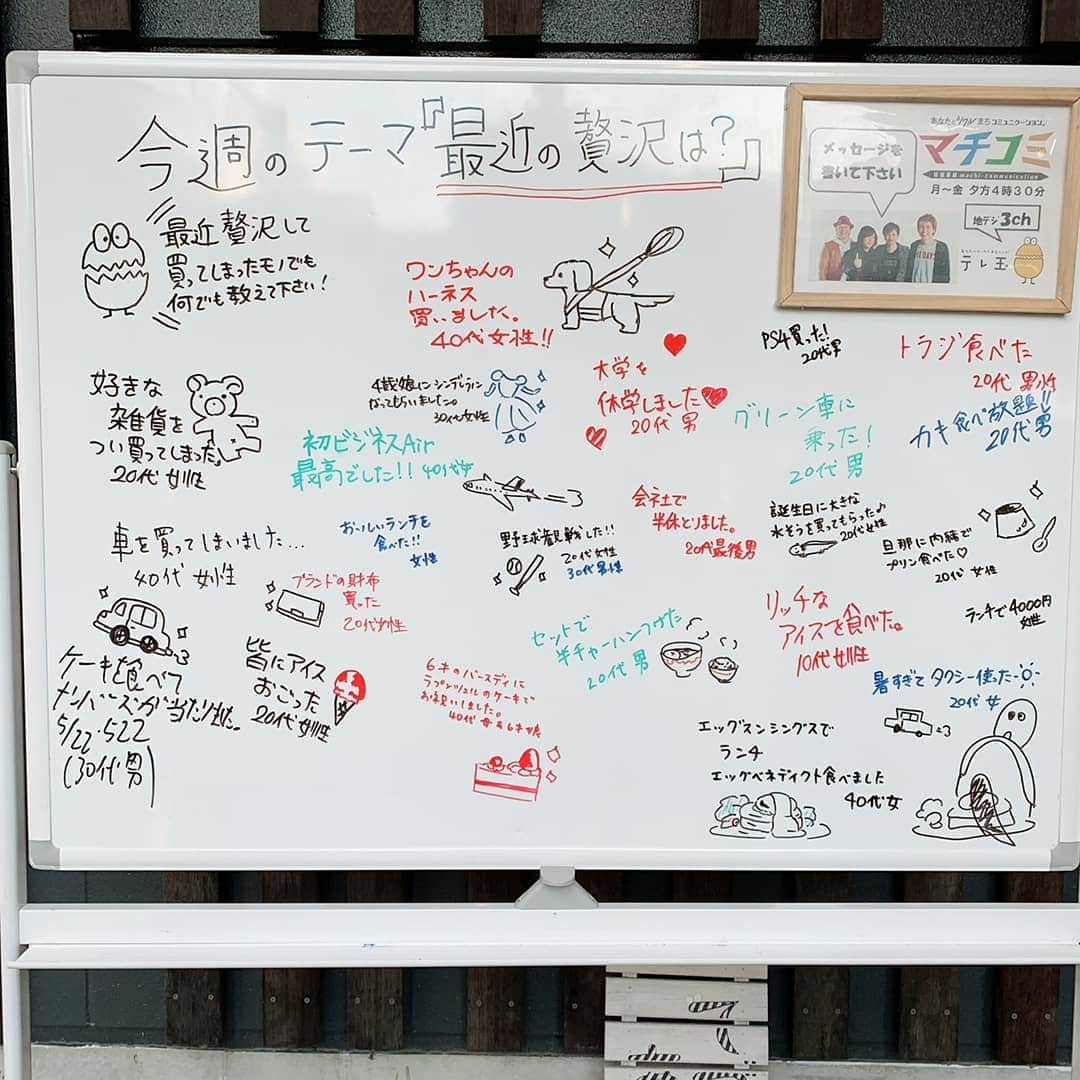 今週のテーマ『最近の贅沢は?』
あなたとリアルに「まちコミュニケーション」
マチコミ
machi-communication
月〜金 夕方4時30分
メッセージを
書いて下さい
地デジ3ch
テレ玉
最近贅沢して
買ってしまったモノでも
何でも教えて下さい!
ワンちゃんの
ハーネス
買いました。
40代女性!!
PS4買った!
20代男
トラジ食べた
20代 男性
好きな
雑貨を
つい買ってしまった。
20代 女性
4歳娘にシンデレラに
なってもらいました。
30代女性
大学を
休学しました
20代 男
グリーン車に
乗った!
20代 男
カキ食べ放題!!
20代 男
初ビジネスAir
最高でした!! 40代女
車を買ってしまいました...
40代 女性
おいしいランチを
食べた!!
女性
野球観戦した!!
20代女性
30代男性
会社で
半休とりました。
20代最後男
誕生日に大きな
水そうを買ってもらった♪
20代女性
旦那に内緒で
プリン食べた♡
20代 女性
ブランドの財布
買った
20代女性
セットで
半チャーハンつけた
20代 男
リッチな
アイスを食べた。
10代女性
ランチで4000円
女性
ケーキを食べて
ナンバーズが当たりました。
5/22・522
(30代男)
皆にアイス
おごった
20代女性
6才のバースディに
ラプンツェルのケーキで
お祝いしました。
40代 母&6才娘
暑すぎてタクシー使った
20代 女
エッグスンシングスで
ランチ
エッグベネディクト食べました
40代女